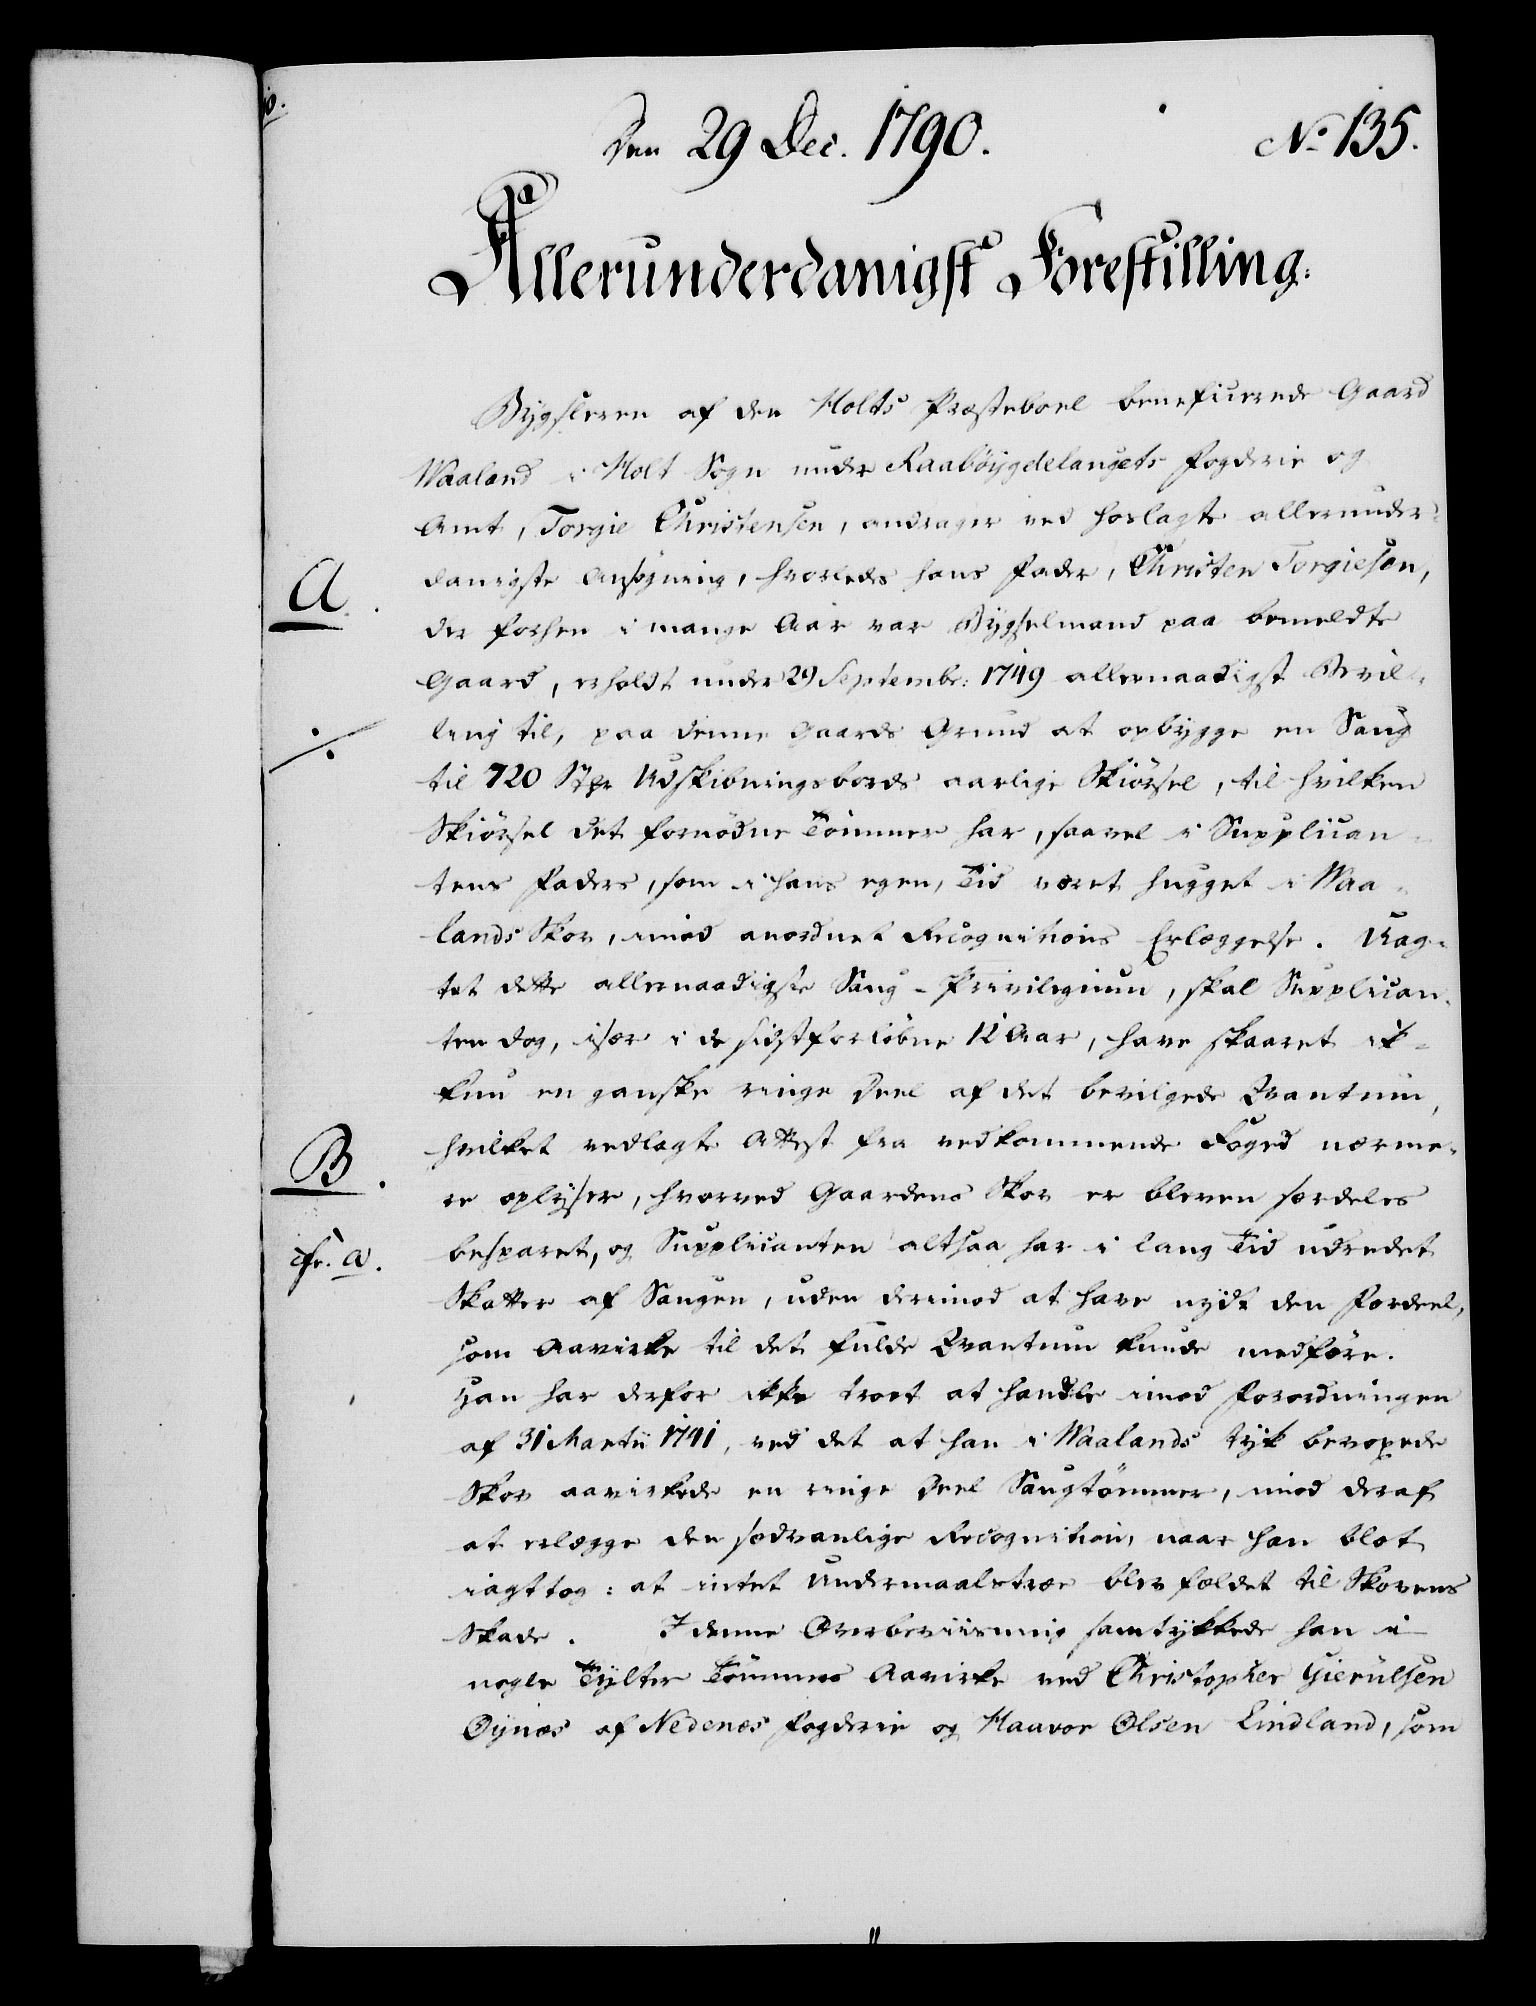 Den 29 Dec. 1790.
No 135.
Allerunderdanigst Forestilling.
Bygsleren af den Holts Præsteboel beneficerede Gaard
Waaland i Holt Sogn under Raabøygdelaugets Fogderie og
Amt, Torgie Christensen, andrager ved hoslagte allerunder-
danigste Ansøgning, hvorledes hans Fader, Christen Torgiesøn,
A.
der forhen i mange Aar var Bygselmand paa bemeldte
Gaard, erholdt under 29 Septembr: 1749 allernaadigst Bevil-
ling til, paa denne Gaards Grund at opbygge en Saug
til 720 Stkr Udskibningsbords aarlige Skiørsel, til hvilken
Skiørsel det fornødne Tømmer har, saavel i Supplican-
tens Faders, som i hans egen, Tid været hugget i Waa-
lands Skov, imod anordnet Recognitions Erlæggelse. Uag-
tet dette allernaadigste Saug-Privilegium, skal Supplican-
ten dog, især i de sidstforløbne 12 Aar, have skaaret ik-
kun en ganske ringe Deel af det bevilgede Qvantum,
hvilket vedlagte Attest fra vedkommende Foged nærme-
B.
re oplyser, hvorved Gaardens Skov er bleven særdeles
besparet, og Supplicanten altsaa har i lang Tid udredet
cfr. a.
Skatter af Saugen, uden derimod at have nydt den Fordeel,
som Aavirke til det fulde Qvantum kunde medføre.
Han har derfor ikke troet at handle imod Forordningen
af 31 Martii 1741, ved det at han i Waalands tyk bevoxede
Skov aavirkede en ringe Deel Saugtømmer, imod deraf
at erlægge den sædvanlige Recognition, naar han blot
iagttog: at intet Undermaalstræe blev fældet til Skovens
Skade. I denne Overbeviisning samtykkede han i
nogle Tylter Tømmers Aavirke ved Christopher Gierulsen
Øynæs af Nedenæs Fogderie og Haavor Olsen Lindland, som